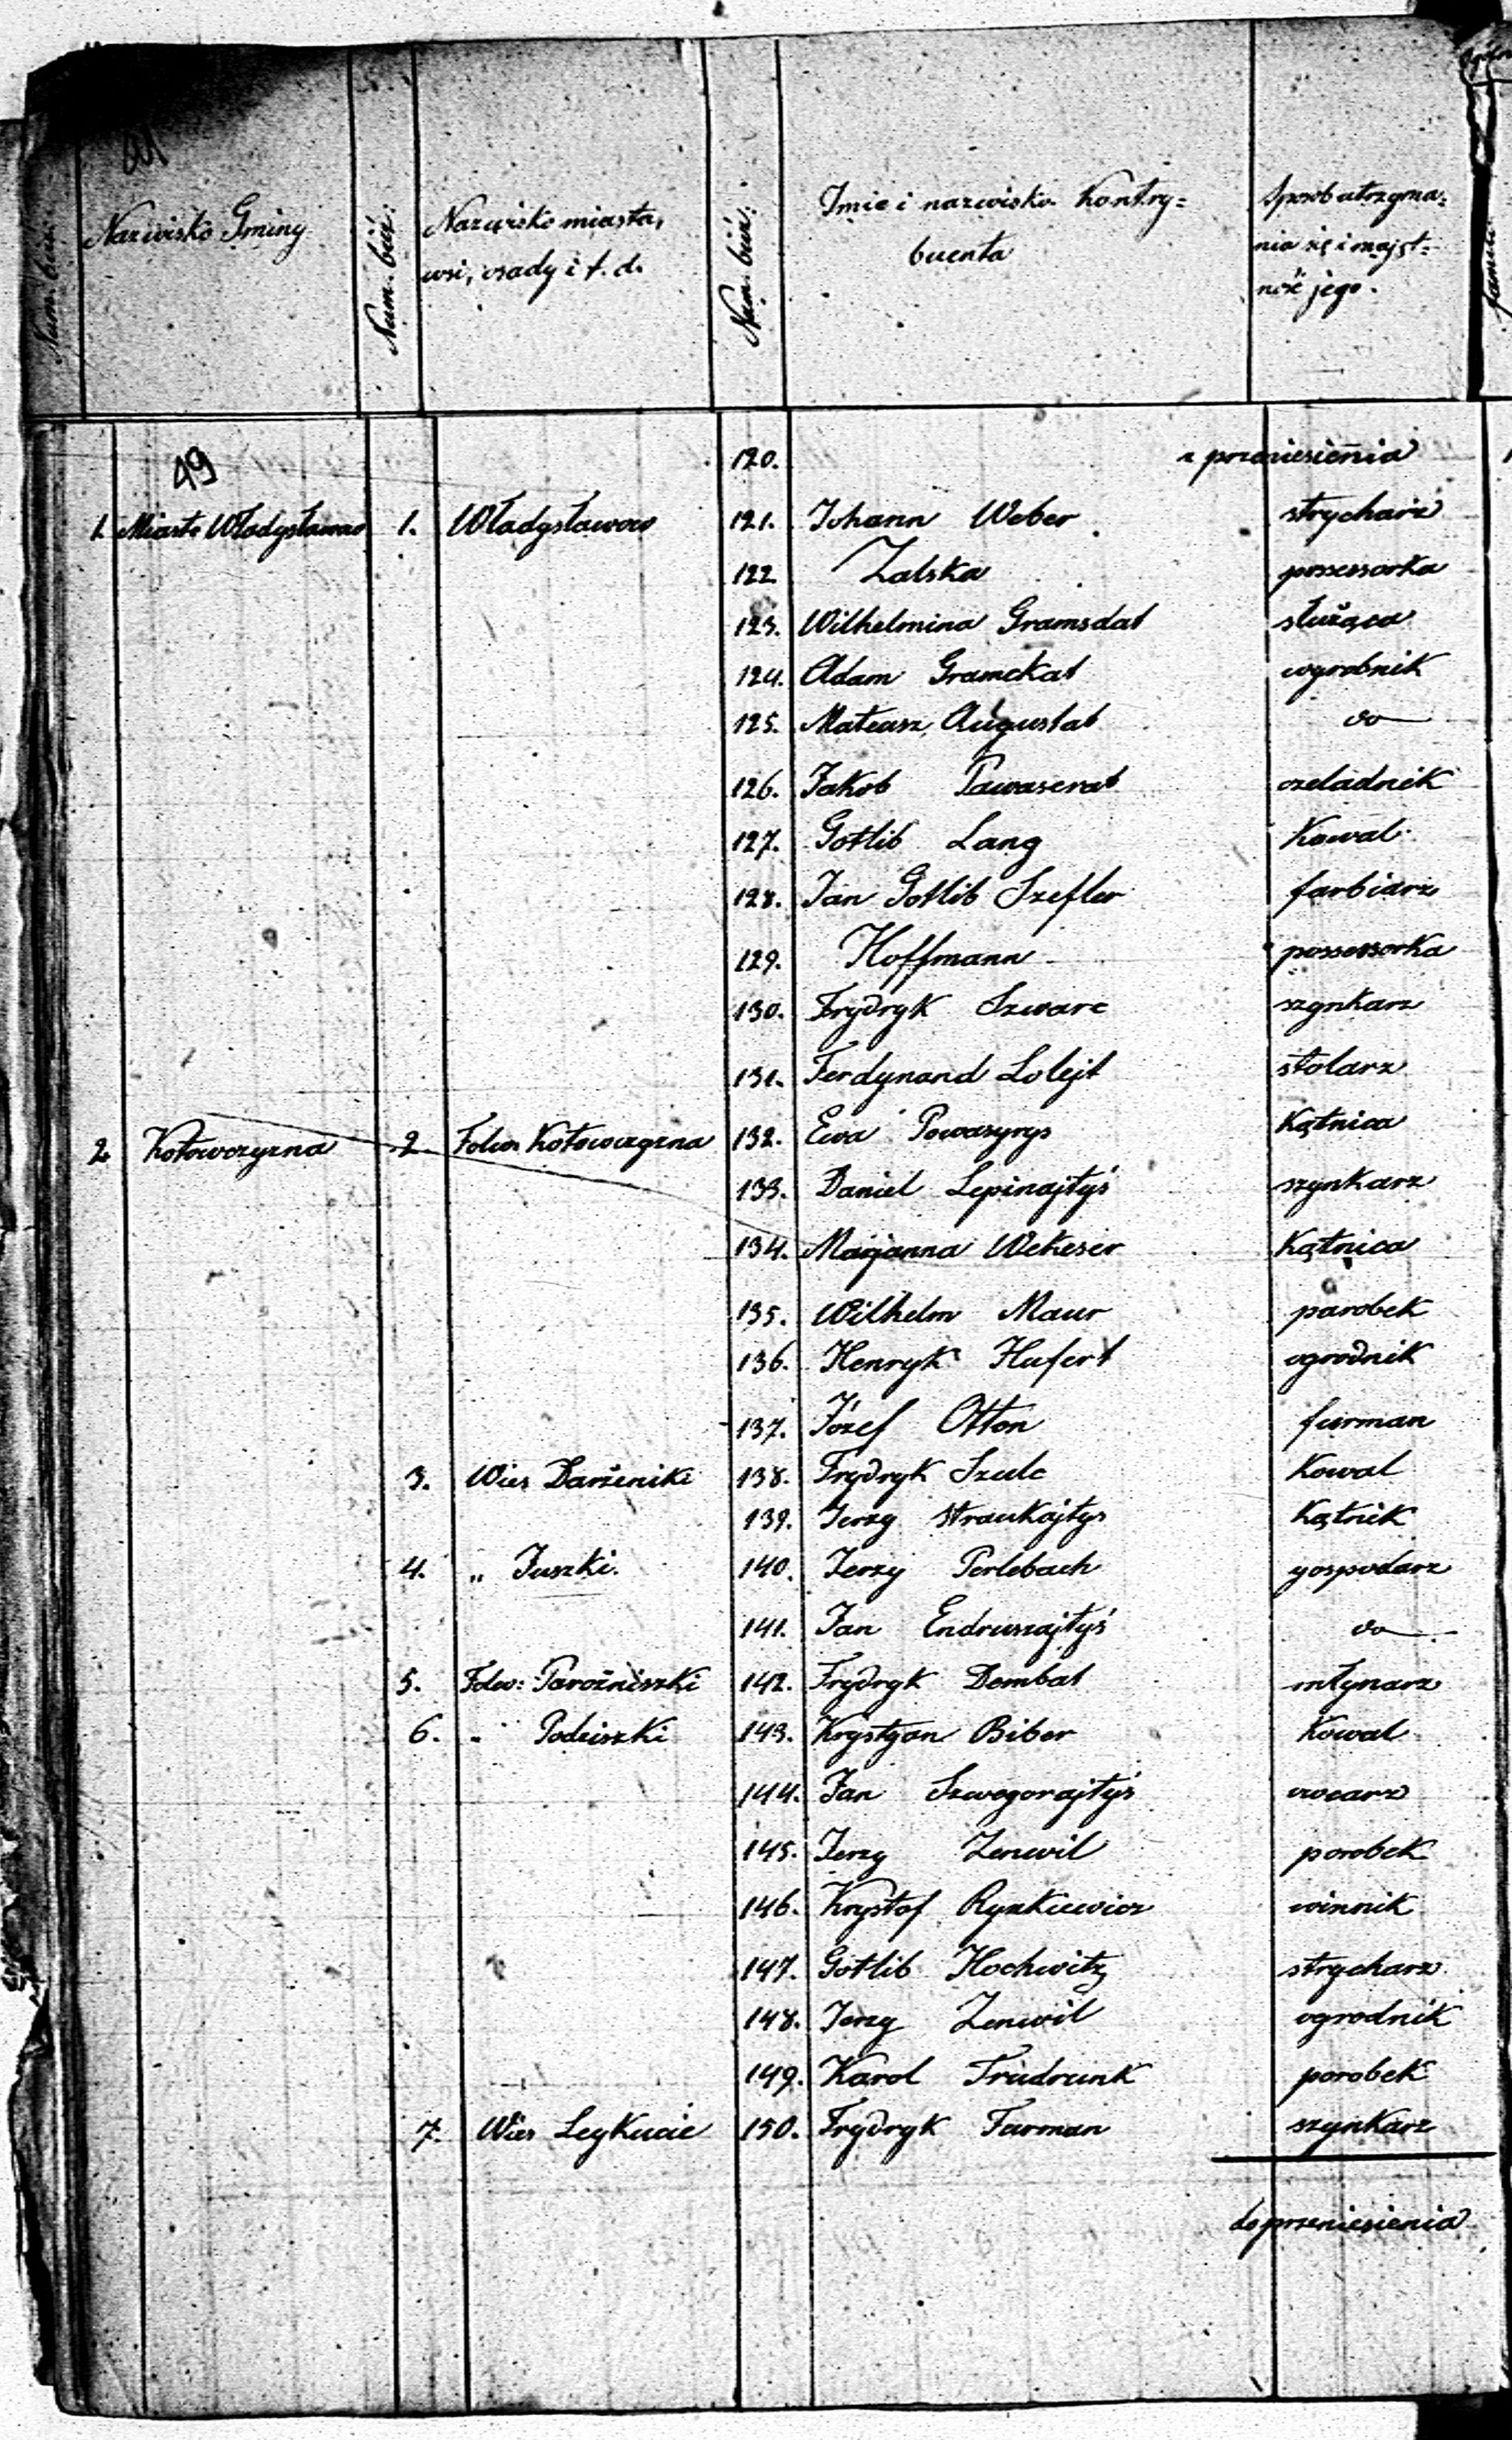 Num. bież.
Nazwisko Gminy
Num. bież.
Nazwisko miasta,
wsi, osady i t. d.
Num. bież.
Imie i nazwisko Kontry=
buenta
Sposób utrzyma=
nia się i majęt=
ność jego.
49
120. z przeniesienia
1. Miasto Władysławów 1. Władysławów 121. Johann Weber strycharz
122 Zalska possessorka
123. Wilhelmina Gramsdat służąca
124. Adam Gramckat wyrobnik
125. Mateusz Augustat do
126. Jakob Pawaserat czeladnik
127. Gotlib Lang Kowal
128. Jan Gotlib Szefler farbiarz
129. Hoffmann possessorka
130. Frydryk Szwarc szynkarz
131. Ferdynand Lolejt stolarz
2 Kotowczyzna 2 Folw. Kotowczyzna 132. Ewa Powaszyrys Kątnica
133. Daniel Lepinajtyś szynkarz
134. Marjanna Wekeser Kątnica
135. Wilhelm Maur parobek
136. Henryk Hufert ogrodnik
137. Józef Otton furman
3. Wieś Darżeniki 138. Frydryk Szulc Kowal
139. Jerzy Straukajtys Kątnik
4. „ Juszki. 140. Jerzy Perlebach gospodarz
141. Jan Endruszajtyś do
5. Folw: Parożniszki 142. Frydryk Dembat młynarz
6. „ Podziszki 143. Krystyan Biber Kowal
144. Jan Szwogorajtyś owcarz
145. Jerzy Zenwil porobek
146. Krysztof Rynkiewicz winnik
147. Gotlib Hochwitz strycharz
148. Jerzy Zenwil ogrodnik
149. Karol Trudrunk porobek
7. Wieś Leykucie 150. Frydryk Furman szynkarz
do przeniesienia